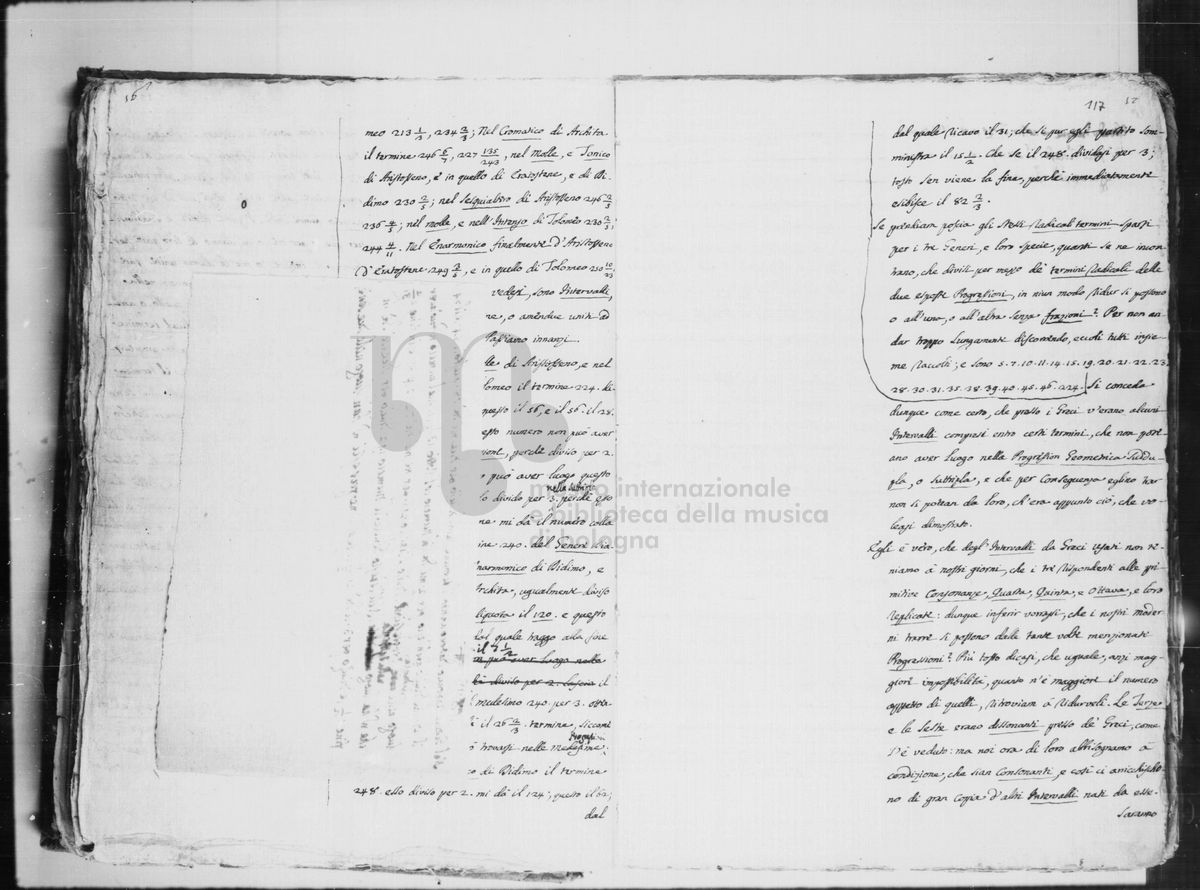 16
meo 213 1/3, 234 2/3; Nel Cromatico di Archita
il termine 246 6/7, 227 135/243, nel Molle, e Tonico
di Aristosseno, e in quello di Eratostene, e di Di-
dimo 230 2/5; nel Sesquialtro di Aristosseno 246 2/5
236 4/5; nel molle, e nell'Intenso di Tolomeo 230 2/5;
244 4/11. Nel Enarmonico finalmente d'Aristosseno
d'Eratostene 249 3/5, e in quello di Tolomeo 250 10/23;
vedesi, sono Intervalli,
ne, o amendue uniti ad
Passiamo innanzi.
lle di Aristosseno, e nel
lomeo il termine 224. di
questo il 56, e il 56. il 28.
esto numero non può aver
sioni, perchè diviso per 2.
può aver luogo questo
nella suttripla
lo divido per 3. perchè esso
ne mi dà il numero colla
ine 240. del Genere Dia
narmonico di Didimo, e
Archita, ugualmente diviso
liquota il 120. e questo
dal quale traggo alla fine
il 7 1/2
n può aver luogo nella
diviso per 2. lascia il
medesimo 240. per 3. otta
il 26 2/3 termine, siccome
Progressioni
trovasi nelle medesime.
di Didimo il termine
248. esso diviso per 2. mi dà il 124; questo il 62;
dal
museo internazionale
e biblioteca della musica
di bologna
117
dal quale ricavo il 31; che si pur egli partito som-
ministra il 15 1/2. Che se il 248. dividasi per 3;
tosto sen viene la fine, perchè immediatamente
esibisce il 82 2/3.
Se prendiam poscia gli stessi Radicali termini sparsi
per i tre Generi, e loro specie, quanti se ne incon-
trano, che divisi per mezzo de' termini Radicali delle
due esposte Progressioni, in niun modo ridur si possono
o all'una, o all'altra senza frazioni? Per non an-
dar troppo lungamente discorrendo, eccoli tutti insie-
me raccolti; e sono 5. 7. 10. 11. 14. 15. 19. 20. 21. 22. 23.
28. 30. 31. 35. 38. 39. 40. 45. 46. 224. Si conceda
dunque come certo, che presso i Greci v'erano alcuni
Intervalli compresi entro certi termini, che non pote-
ano aver luogo nella Progression Geometrica Suddu-
pla, o Suttripla, e che per conseguenza eglino trar
non si potean da loro, ch'era appunto ciò, che vo-
leasi dimostrato.
Egli è vero, che degl'Intervalli da Greci usati non ve-
niamo a nostri giorni, che i tre rispondenti alle pri-
mitive Consonanze, Quarta, Quinta, e Ottava, e loro
Replicate: dunque inferir vorrassi, che i nostri moder-
ni trarre si possono dalle tante volte menzionate
Progressioni? Più tosto dicasi, che uguale, anzi mag-
giore impossibilità, quanto n'è maggiore il numero
appetto di quelli, ritroviam a ridurveli. Le Terze
e le Seste erano dissonanti presso de' Greci, come
s'è veduto: ma noi ora di loro abbisognamo a
condizione, che sian Consonanti, e così ci arricchischo-
no di gran copia d'altri Intervalli nati da esse.
Saranno